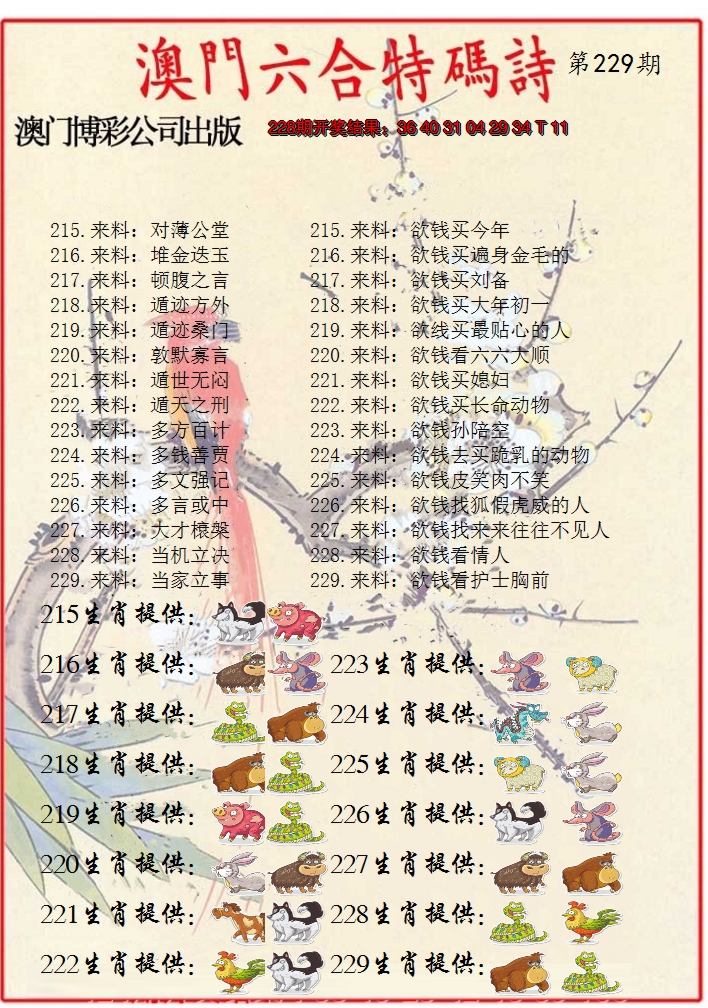 澳門六合特碼詩 第229期
澳门博彩公司出版 228期开奖结果：36 40 31 04 29 34 T 11
215.来料：对薄公堂 215.来料：欲钱买今年
216.来料：堆金迭玉 216.来料：欲钱买遍身金毛的
217.来料：顿腹之言 217.来料：欲钱买刘备
218.来料：遁迹方外 218.来料：欲钱买大年初一
219.来料：遁迹桑门 219.来料：欲线买最贴心的人
220.来料：敦默寡言 220.来料：欲钱看六六大顺
221.来料：遁世无闷 221.来料：欲钱买媳妇
222.来料：遁天之刑 222.来料：欲钱买长命动物
223.来料：多方百计 223.来料：欲钱孙陪空
224.来料：多钱善贾 224.来料：欲钱去买跪乳的动物
225.来料：多文强记 225.来料：欲钱皮笑肉不笑
226.来料：多言或中 226.来料：欲钱找狐假虎威的人
227.来料：大才榱槃 227.来料：欲钱找来来往往不见人
228.来料：当机立决 228.来料：欲钱看情人
229.来料：当家立事 229.来料：欲钱看护士胸前
215生肖提供：
216生肖提供： 223生肖提供：
217生肖提供： 224生肖提供：
218生肖提供： 225生肖提供：
219生肖提供： 226生肖提供：
220生肖提供： 227生肖提供：
221生肖提供： 228生肖提供：
222生肖提供： 229生肖提供：